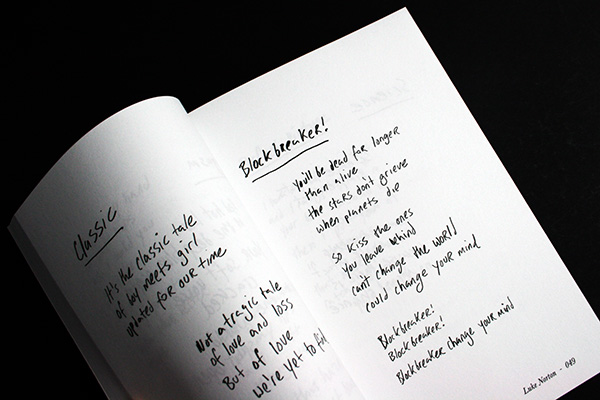 Classic
It's the classic tale
of boy meets girl
updated for our time
Not a tragic tale
of love and loss
But of love
we're yet to
Blockbreaker!
You'll be dead for longer
than alive
the stars don't grieve
when planets die
So kiss the ones
you leave behind
can't change the world
could change your mind
Blockbreaker!
Blockbreaker!
Blockbreaker change your mind
Luke Norton - 049